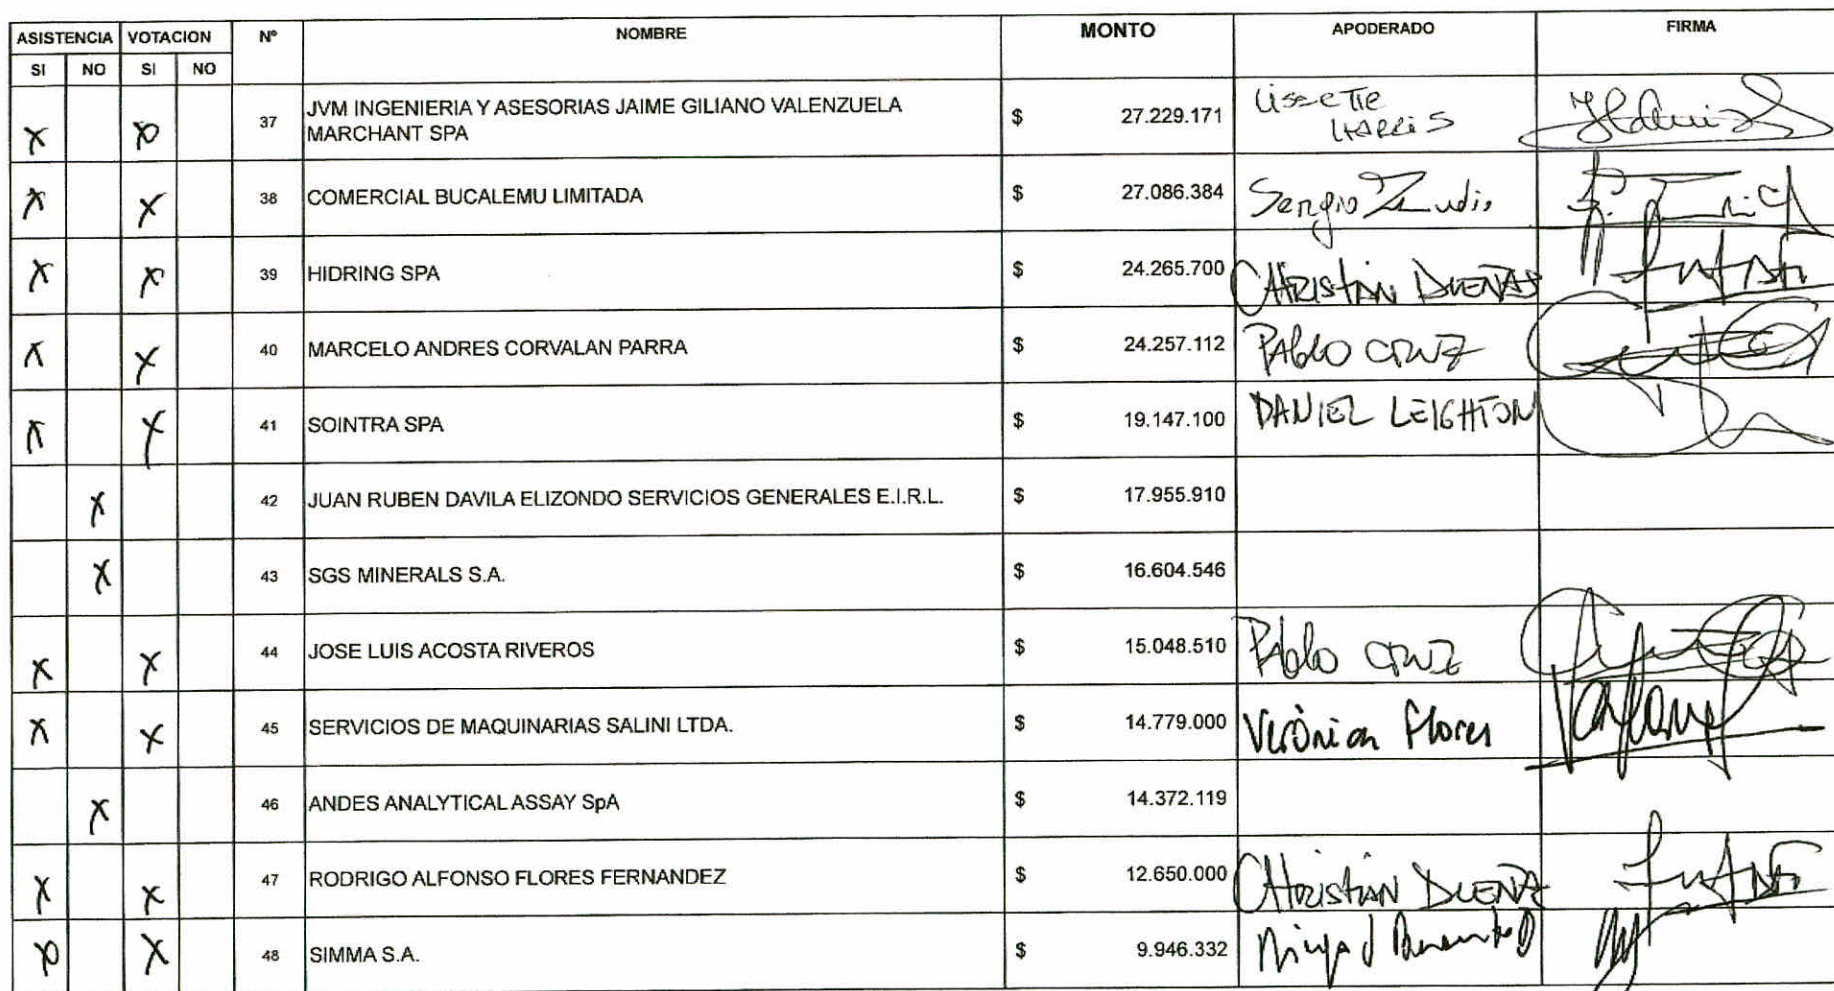 ASISTENCIA VOTACION Nº NOMBRE MONTO APODERADO FIRMA
SI NO SI NO
X X 37 JVM INGENIERIA Y ASESORIAS JAIME GILIANO VALENZUELA MARCHANT SPA $ 27.229.171 Lissette HARRIS
X X 38 COMERCIAL BUCALEMU LIMITADA $ 27.086.384 Sergio
X X 39 HIDRING SPA $ 24.265.700 CHRISTIAN DUEÑAS
X X 40 MARCELO ANDRES CORVALAN PARRA $ 24.257.112 PABLO CRUZ
X X 41 SOINTRA SPA $ 19.147.100 DANIEL LEIGHTON
X 42 JUAN RUBEN DAVILA ELIZONDO SERVICIOS GENERALES E.I.R.L. $ 17.955.910
X 43 SGS MINERALS S.A. $ 16.604.546
X X 44 JOSE LUIS ACOSTA RIVEROS $ 15.048.510 Pablo CRUZ
X X 45 SERVICIOS DE MAQUINARIAS SALINI LTDA. $ 14.779.000 Verónica Flores
X 46 ANDES ANALYTICAL ASSAY SpA $ 14.372.119
X X 47 RODRIGO ALFONSO FLORES FERNANDEZ $ 12.650.000 CHRISTIAN DUEÑAS
X X 48 SIMMA S.A. $ 9.946.332